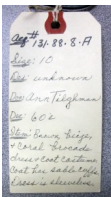 Acq# 131-88-8-A
Size: 10
Des: unknown
Don: Ann Tilghman
Date: 60s
Show: Brown, beiges,
+ coral brocade
dress + coat costume.
Coat has sable cuffs
Dress is sleeveless.